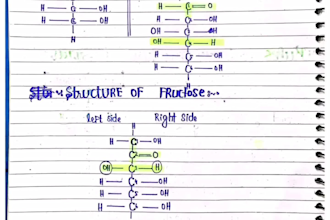 H — C — OH
H — C — OH
H
H — C = O
H — C — OH
OH — C — H
OH — C — H
H — C — OH
H — C — OH
H
Structure of Fructose:-
left side Right side
H
H — C — OH
C = O
OH — C — H
H — C — OH
H — C — OH
H — C — OH
H